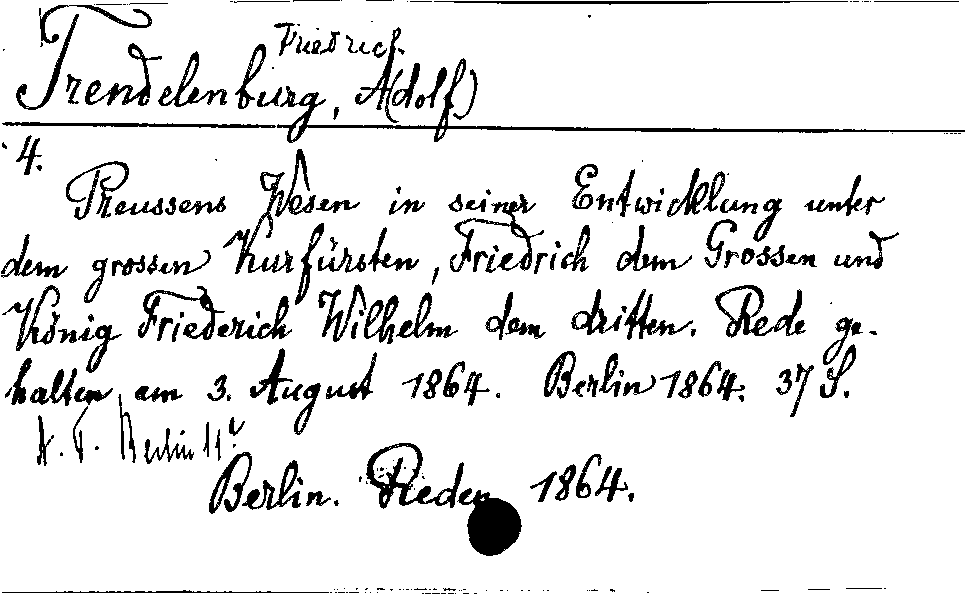 Friedrich
Trendelenburg, A(dolf)
4.
Preussens Wesen in seiner Entwicklung unter
dem grossen Kurfürsten, Friedrich dem Grossen und
König Friederich Wilhelm dem dritten. Rede ge-
halten am 3. August 1864. Berlin 1864. 37 S.
Berlin
Berlin. Reden 1864.